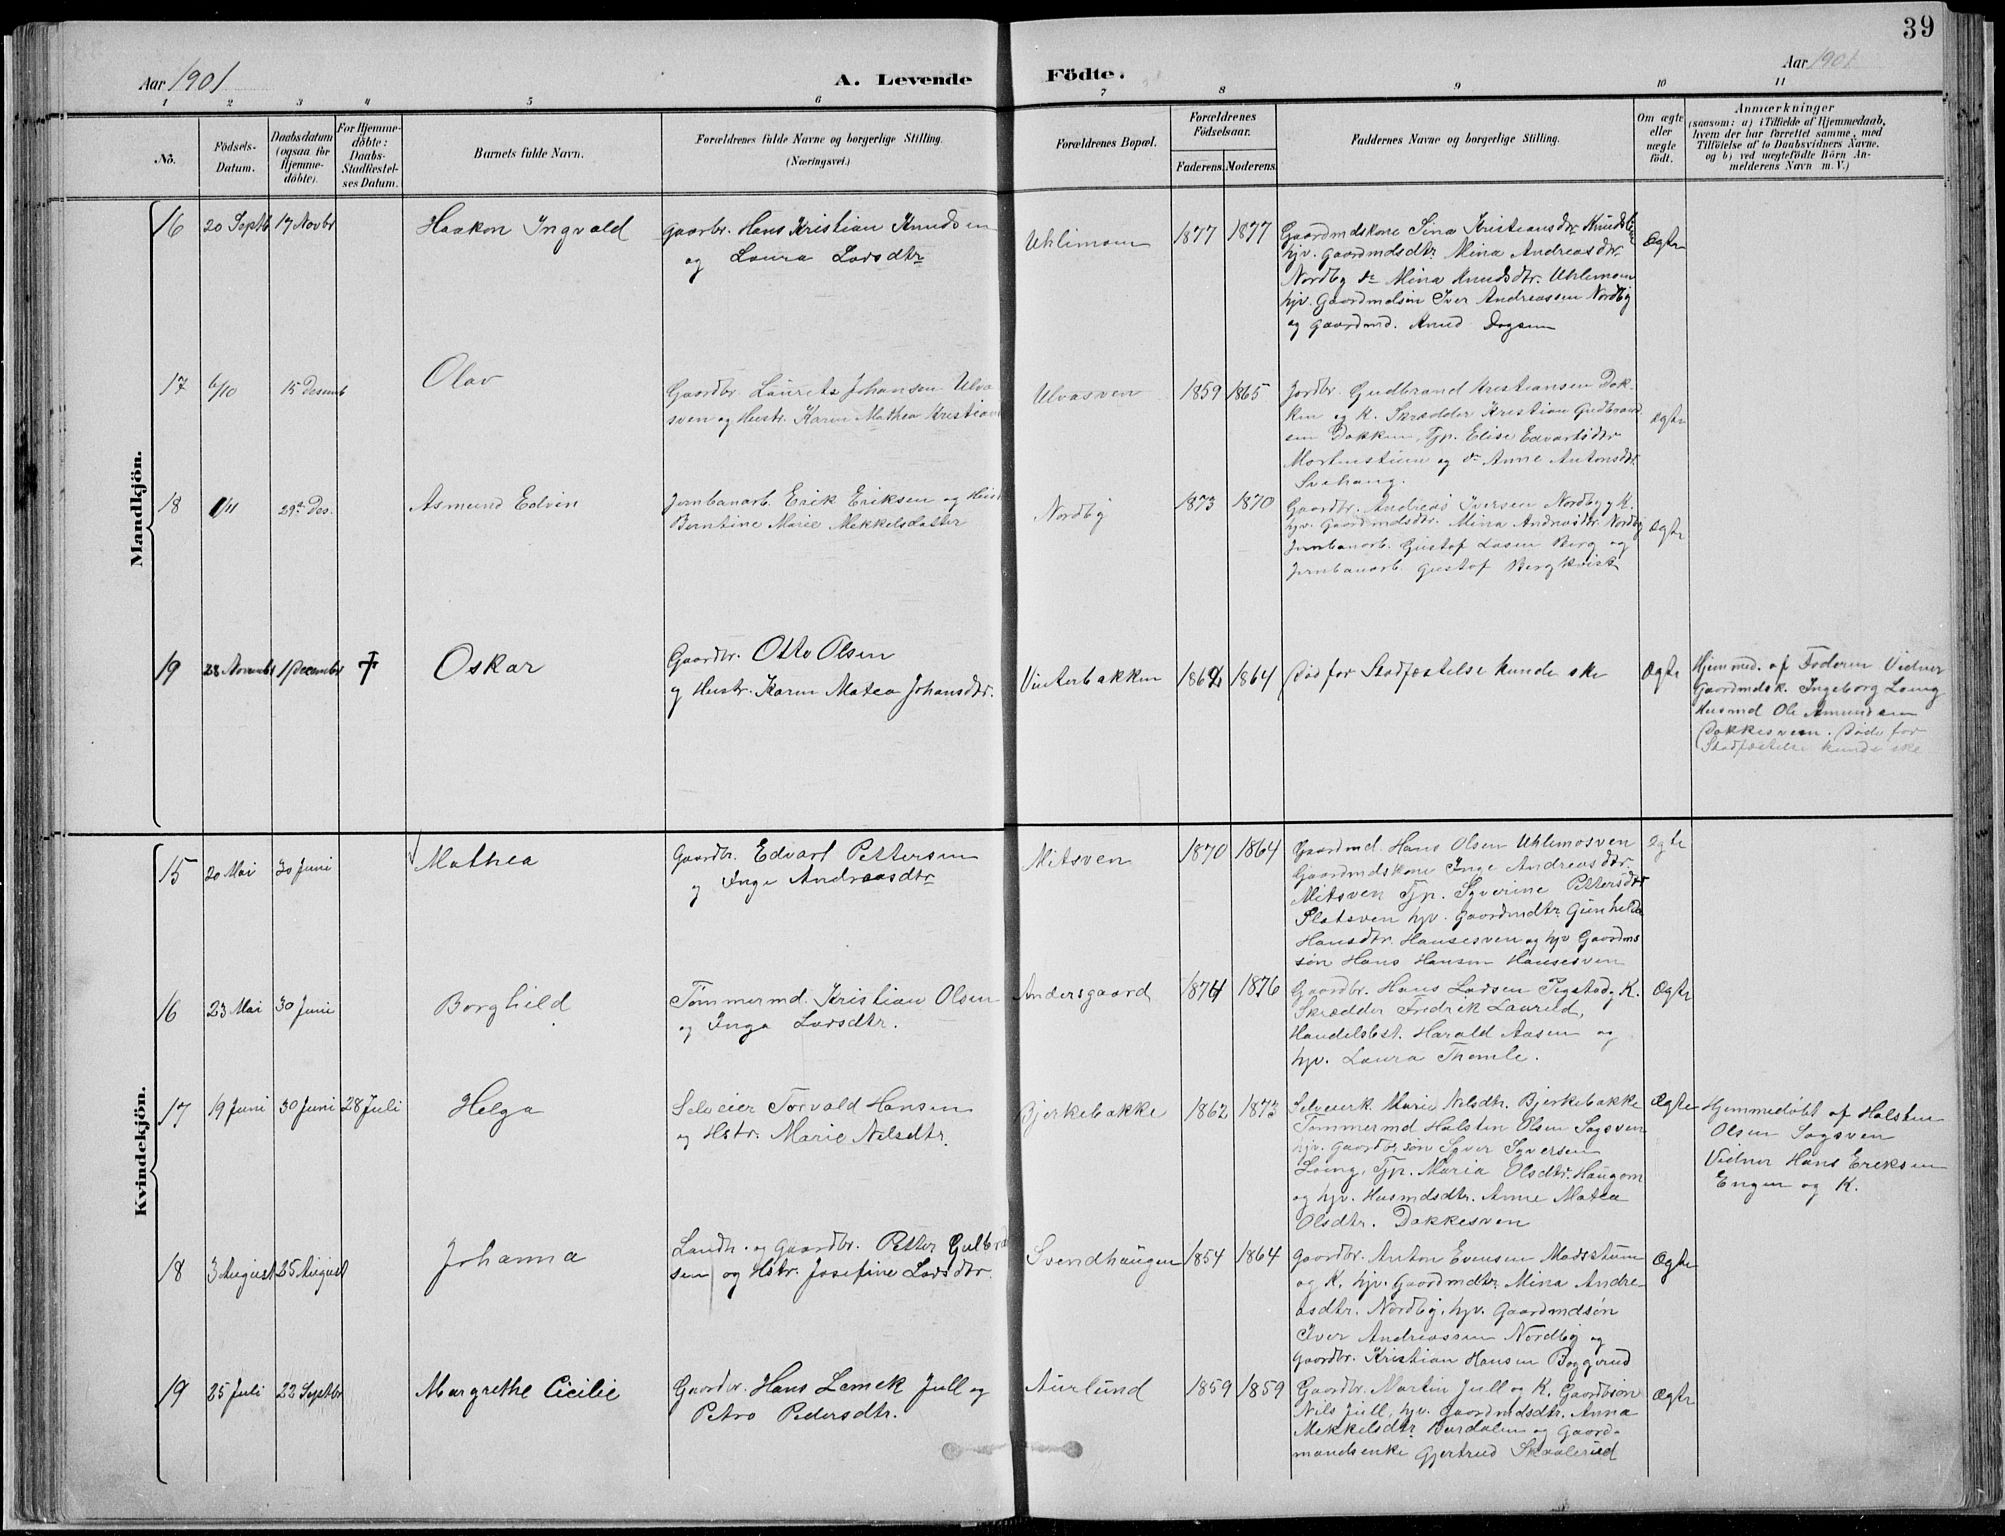 39
Aar 1901
A. Levende
Födte.
Aar 1901
1 2 3 4 5 6 7 8 9 10 11
No.
Födsels-
Datum.
Daabsdatum
(ogsaa for
Hjemme-
döbte).
For Hjemme-
döbte:
Daabs-
Stadfæstel-
ses Datum.
Barnets fulde Navn.
Forældrenes fulde Navne og borgerlige Stilling.
(Næringsvei.)
Forældrenes Bopæl.
Forældrenes
Födselsaar.
Faderens. Moderens.
Faddernes Navne og borgerlige Stilling.
Om ægte
eller
uægte
födt.
Anmærkninger
(saasom: a) i Tilfælde af Hjemmedaab,
hvem der har forrettet samme, med
Tilföielse af to Daabsvidners Navne.
og b) ved uægtefödte Börn An-
melderens Navn m. V.)
Mandkjön.
16 20 Septb 17 Novbr
Haakon Ingvald
Gaarbr. Hans Kristian Knudsen
og Laura Larsdtr
Uhlimoen
1877 1877
Gaardmdskone Sina Kristiansdtr
hjv. Gaardmdsdtr. Mina Andreasdtr.
Nordby do Mina Knudsdtr. Uhlimoen
hjv. Gaardmdsøn Iver Andreassen Nordby
og Gaardmd. Knud
Ægte
17 6/10 15 Desemb
Olav
Gaardbr. Laurits Johansen Ulva
sven og Hustr. Karen Mathea Kristians
Ulvasven
1859 1865
Jordbr. Gudbrand Kristiansen Dok-
ken og K. Skrædder Kristian Gudbrand
sen Dokken, Tjp. Elise Edvartsdtr
og do Anne Antonsdtr.
Ægte
18 29de Des.
Asmund Edvin
Jernbanarb. Erik Eriksen og Hust
Berntine Marie Mekkelsdatter
Nordby
1873 1870
Gaardbr. Andreas Iversen Nordby og K.
hjv. Gaardmdsdtr. Mina Andreasdtr. Nordby
Jernbanarb. Gustaf Berg og
Jernbanarb. Gustaf Bergkvist
Ægte
19 28 Novembr 1 December
Oskar
Gaardbr. Otto Olsen
og Hustr. Karen Matea Johansdtr.
Vinterbakken
1862 1864
Død før Stadfæstelse kunde ske
Ægte
Hjemmed. af Faderen Vidner
Gaardmdsk. Ingeborg Loeng
Husmd Ole Amundsen
Dokkesveen. Døde før
Stadfæstelse kunde ske
Kvindekjön.
15 20 Mai 30 Juni
Mathea
Gaardbr. Edvart Pettersen
og Inge Andreasdtr
Mitsven
1870 1864
Gaardmd Hans Olsen Uhlimosven
Gaardmdskone Inge Andreasdtr.
Mitsven Tjp. Syverine Pettersdtr
Slatsven hjv. Gaardmdtr. Gunhilde
Hansdtr. Hansesven og hjv Gaardms
søn Hans Hansen Hansesven
Ægte
16 23 Mai 30 Juni
Borghild
Tømmermd. Kristian Olsen
og Inga Larsdtr.
Andersgaard
1874 1876
Gaardbr. Hans Larsen og K.
Skrædder Fredrik Laurild,
Handelsbst. Harald Aasen og
hjv. Laura Thomle.
Ægte
17 19 Juni 30 Juni 28 Juli
Helga
Selveier Torvald Hansen
og Hstr. Marie Nilsdtr.
Bjerkebakke
1862 1873
Selveierk. Marie Nilsdtr. Bjerkebakke
Tømmermd Halsten Olsen Sagsven
hjv. Gaardbr.søn Syver Syversen
Loeng, Tjp. Maria Olsdtr. Haugom
og hjv. Husmdsdtr. Anne Matea
Olsdtr. Dokkesven
Ægte
Hjemmedøbt af Halsten
Olsen Sagsven
Vidner Hans Ereksen
Engen og K.
18 3 August 25 August
Johanna
Landh. og Gaardbr. Petter Gulbrand
sen og Hstr. Josefine Larsdtr.
Svendhaugen
1854 1864
Gaardbr. Anton Evensen Madsstuen
og K. hjv. Gaardmdtr. Mina Andre-
asdtr. Nordby, hjv. Gaardmdsøn
Iver Andreassen Nordby og
Gaardbr. Kristian Hansen Byggerud
Ægte
19 25 Juli 22 Septbr
Margrethe Cicilie
Gaardbr. Hans Lemek Jull og
Petra Pedersdtr.
Aurlund
1859 1859
Gaardbr. Martin Jull og K. Gaardbsøn
Nils Jull, hjv. Gaardmdsdtr. Anna
Mekkelsdtr. og Gaard-
mandsenke Gjertrud
Ægte